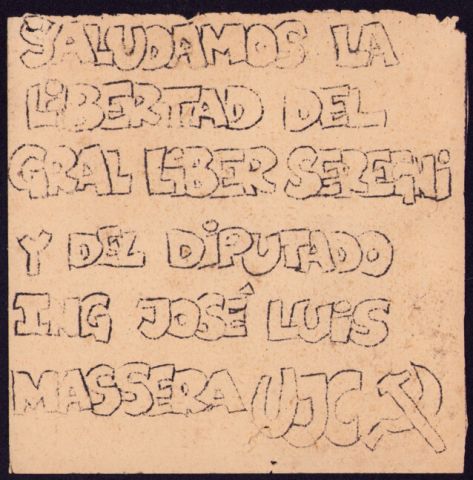 SALUDAMOS LA
LIBERTAD DEL
GRAL LIBER SEREGNI
Y DEL DIPUTADO
ING JOSÉ LUIS
MASSERA UJC